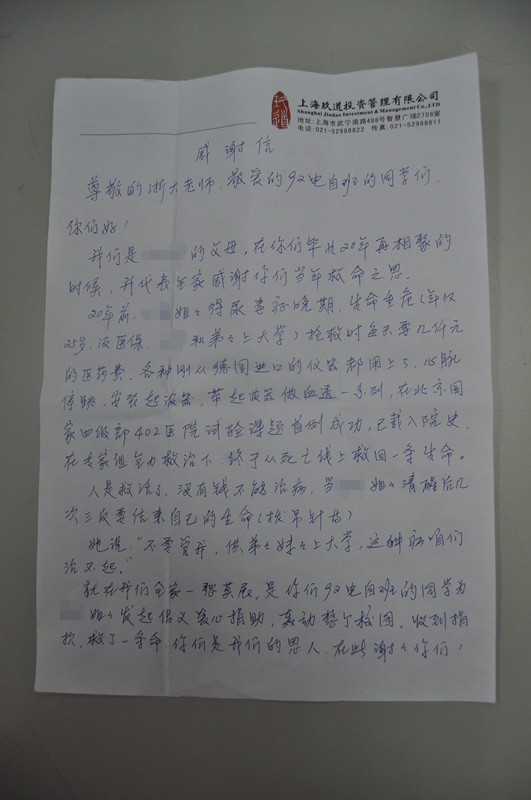 玖道
上海玖道投资管理有限公司
Shanghai Jiudao Investment & Management Co.,LTD
地址:上海市武宁南路488号智慧广场2708室
电话:021-52988822 传真:021-52988811
感谢信
尊敬的浙大老师、敬爱的92电自班的同学们,
你们好!
我们是 的父母,在你们毕业20年再相聚的
时候,我代表全家感谢你们当年救命之恩。
20年前, 姐々得尿毒症晚期,生命垂危(年仅
25岁,没医保, 和弟々上大学)抢救时每天要几仟元
的医药费,各种刚从德国进口的仪器都用上了,心脏
停跳,安装起波器,带起波器做血透一系列,在北京国
家四级部402医院试验课题首例成功,已载入院史,
在专家组全力救治下,终于从死亡线上救回一条生命。
人是救活了,没有钱不能治病,当 姐々清醒后几
次三次要结束自己的生命(拔吊针等)
她说:"不要管我,供弟々妹々上大学,这种病咱们
治不起。"
就在我们全家一愁莫展,是你们92电自班的同学为
姐々发起倡义爱心捐助,轰动整个校园,收到捐
款,救了一条命,你们是我们的恩人,在此谢々你们!